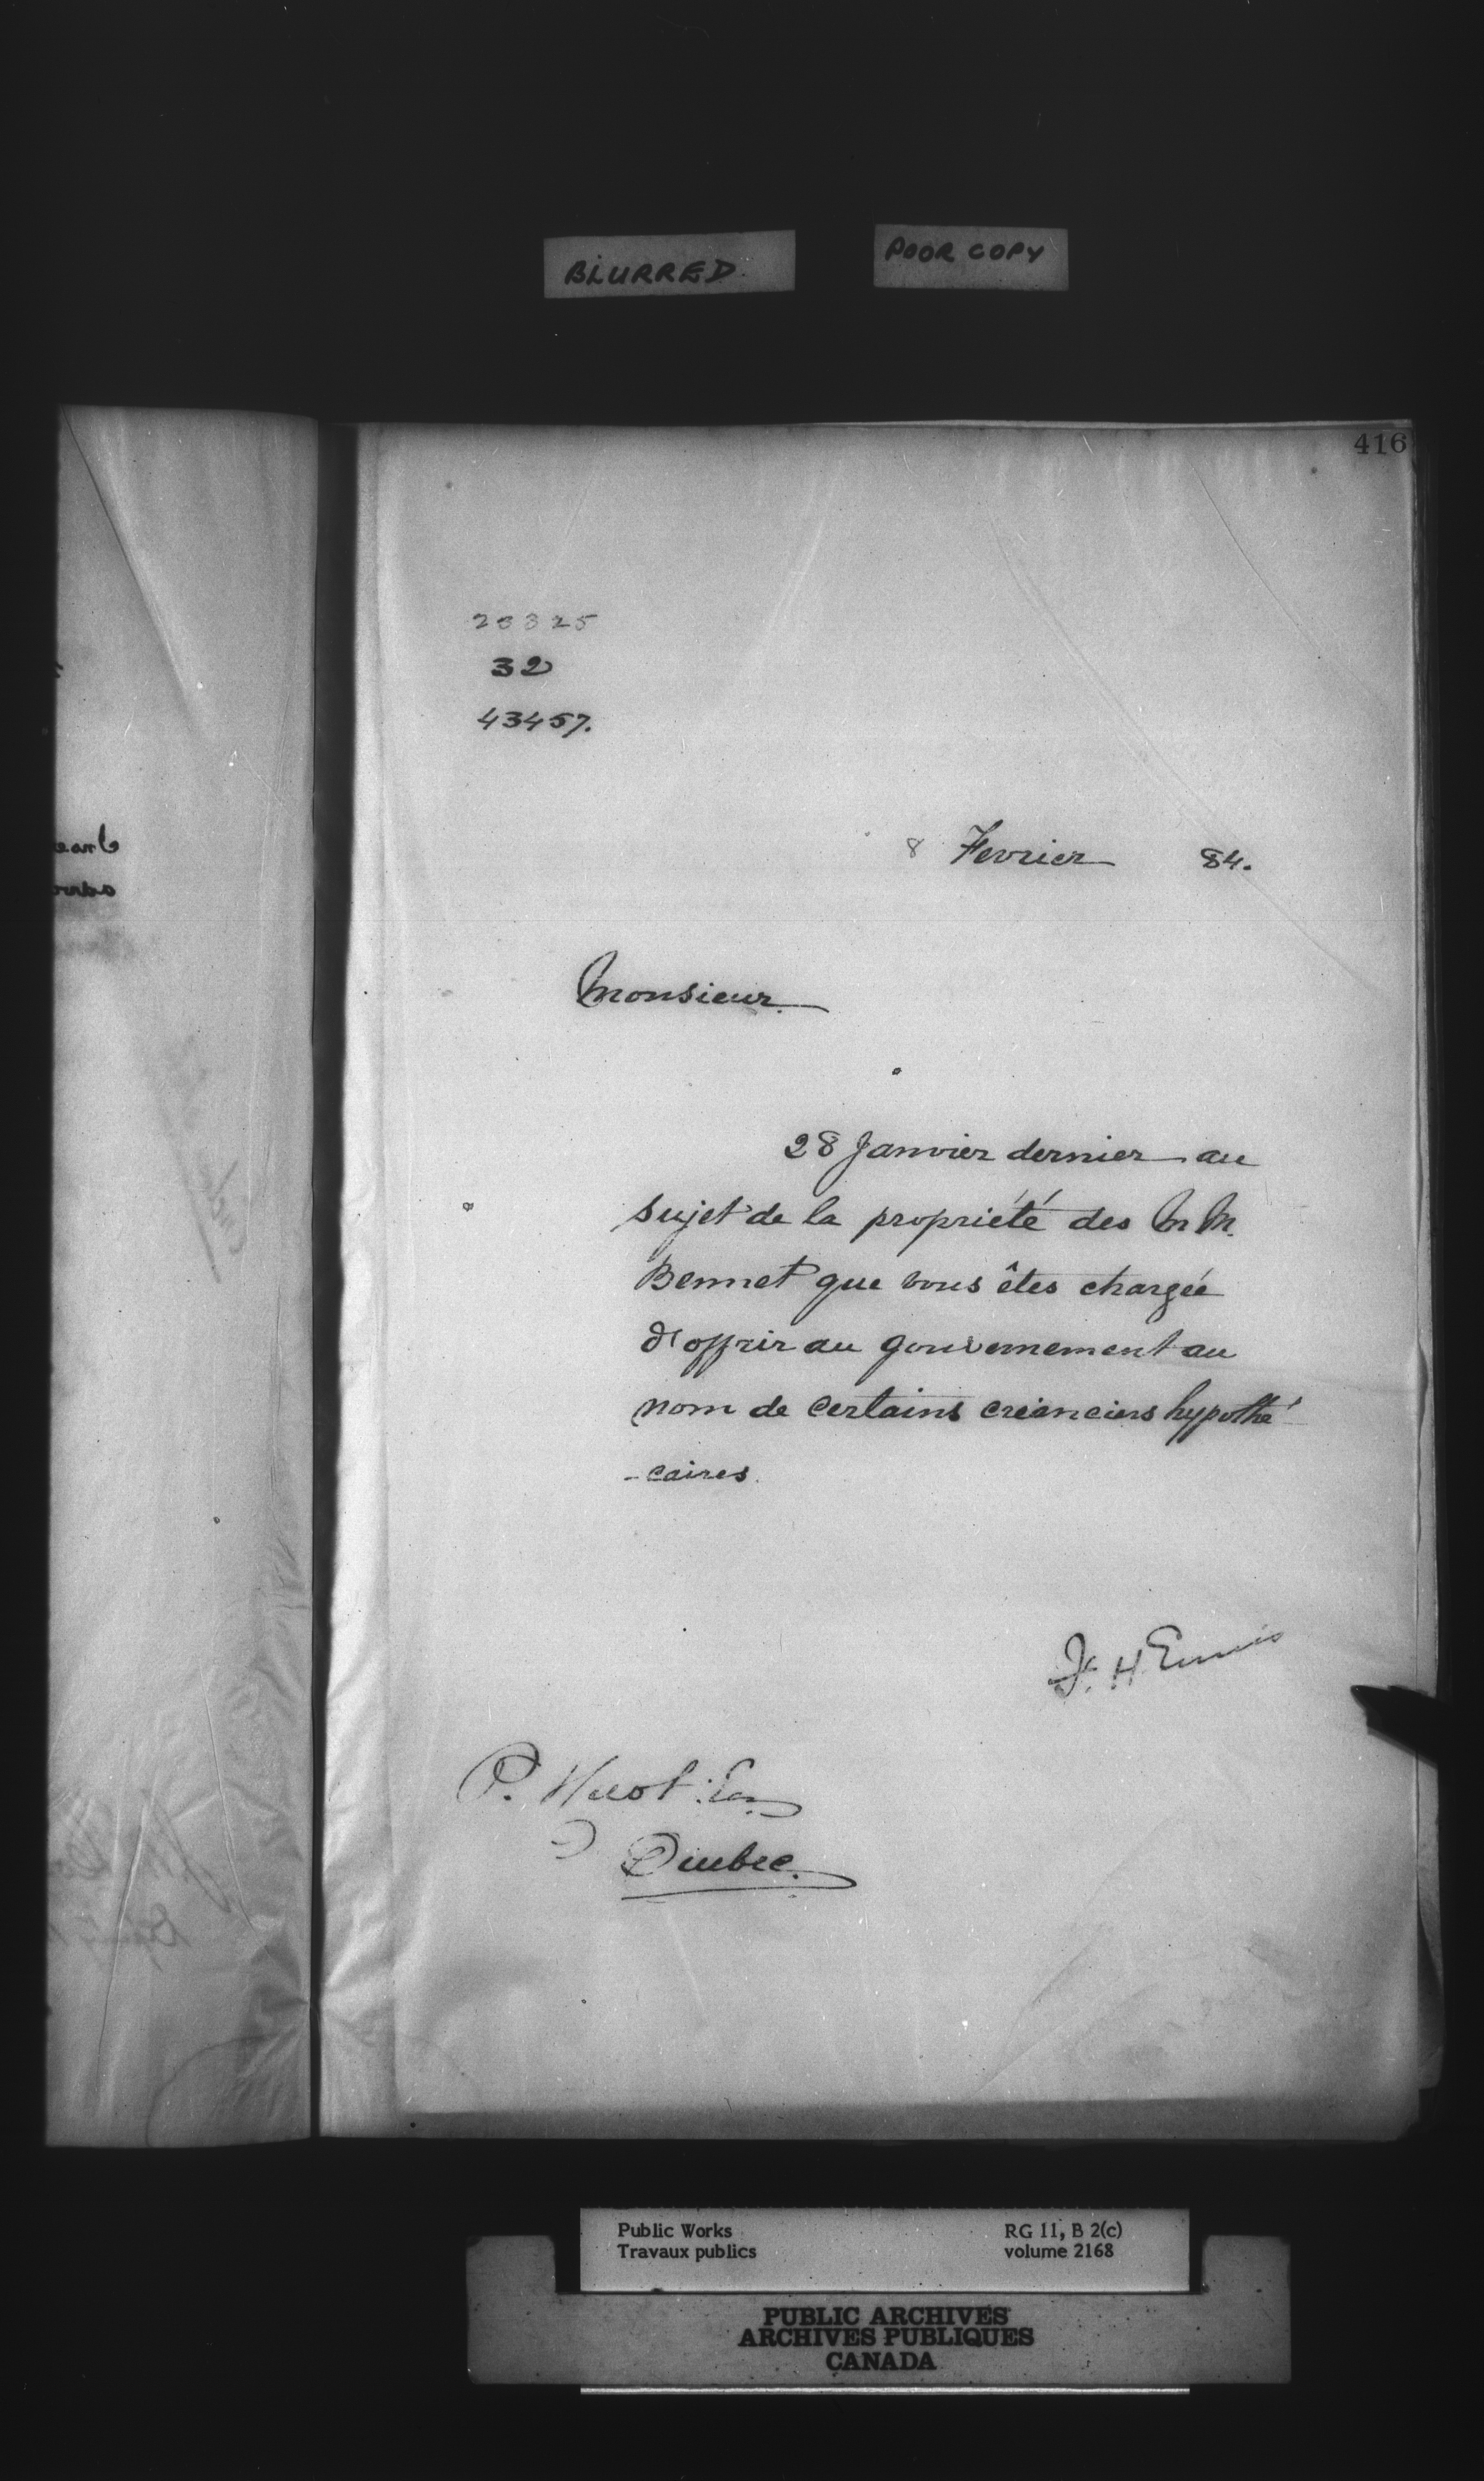 BLURRED
POOR COPY
416
20325
32
43457.
8 Fevrier 84.
Monsieur
28 Janvier dernier au
sujet de la propriété des MM.
Bennet que vous êtes chargée
d'offrir au gouvernement au
nom de certains creanciers hypothé
-caires.
F. H. Ennis
P. Huot
Quebec.
Public Works
Travaux publics
RG 11, B 2(c)
volume 2168
PUBLIC ARCHIVES
ARCHIVES PUBLIQUES
CANADA